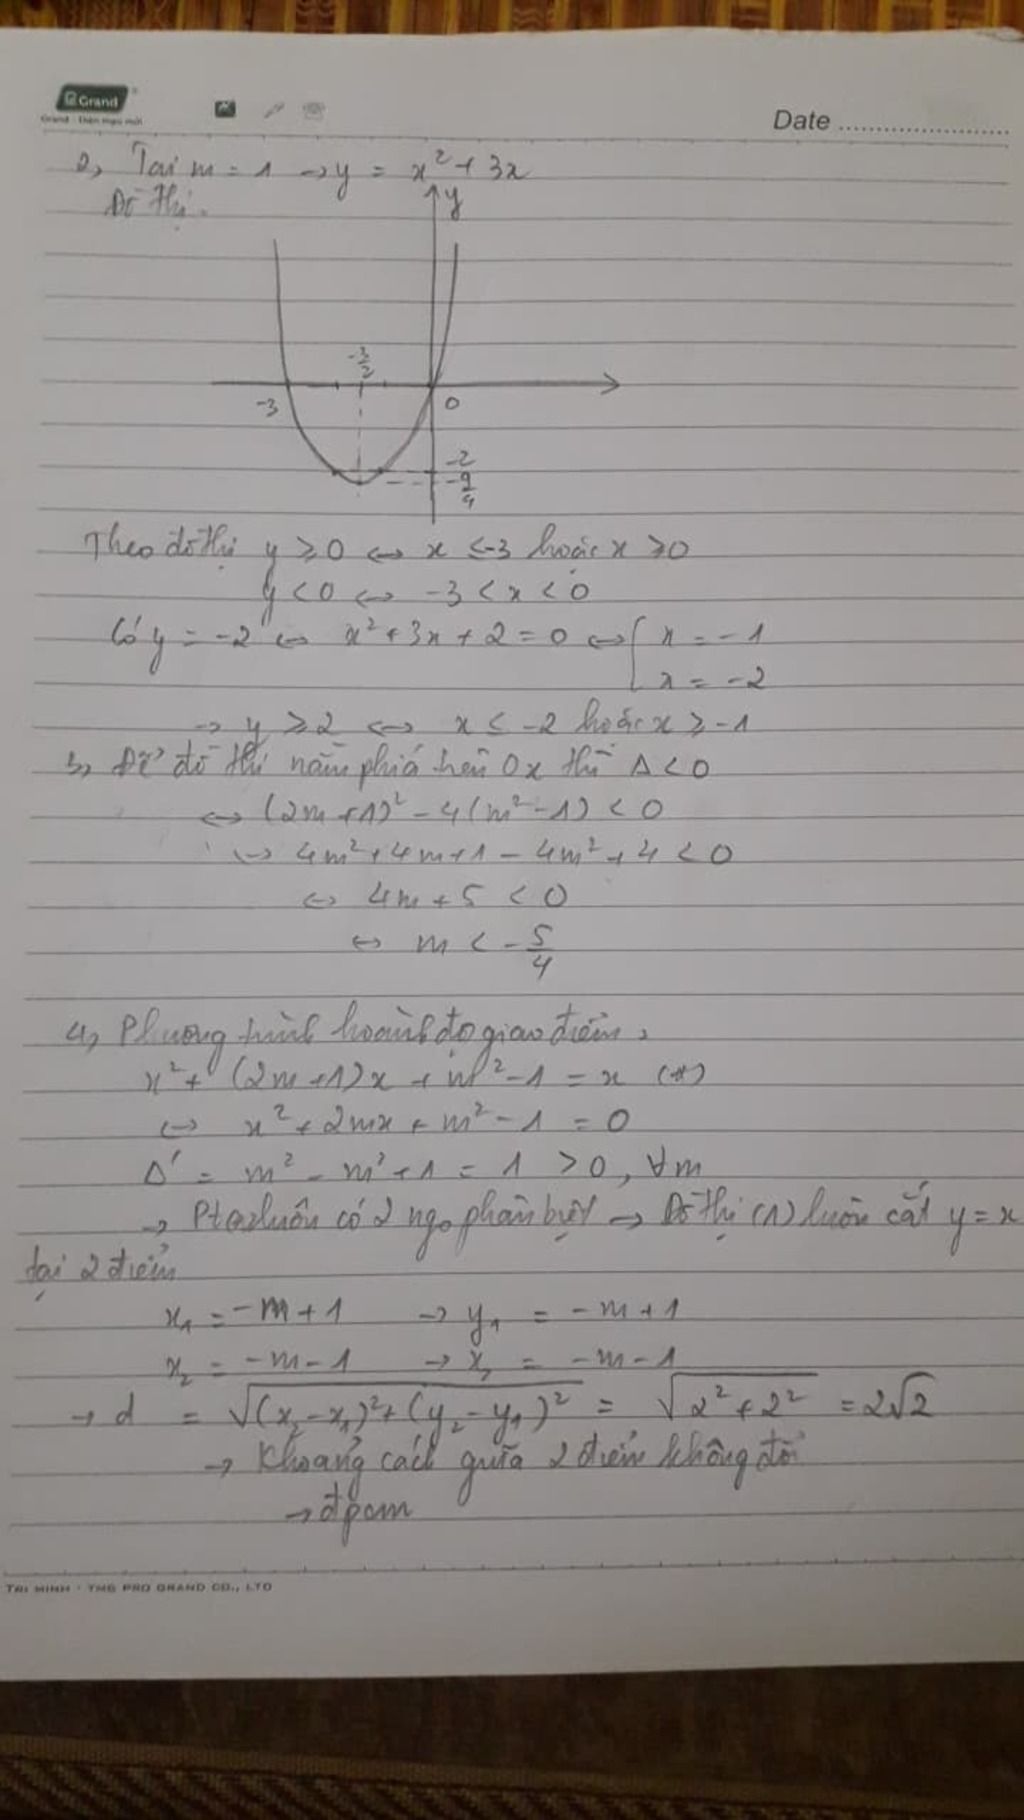 Grand
Date
2, Tại m = 1 → y = x² + 3x
Đồ thị.
y
-3/2
-3
0
-2
-9/4
Theo đồ thị y ≥ 0 ↔ x ≤ -3 hoặc x ≥ 0
y < 0 ↔ -3 < x < 0
Có y = -2 ↔ x² + 3x + 2 = 0 ↔ [ x = -1
x = -2
→ y ≥ 2 ↔ x ≤ -2 hoặc x ≥ -1
3, Để đồ thị nằm phiá trên Ox thì Δ < 0
↔ (2m + 1)² - 4(m² - 1) < 0
↔ 4m² + 4m + 1 - 4m² + 4 < 0
↔ 4m + 5 < 0
↔ m < -5/4
4, Phương trình hoành độ giao điểm:
x² + (2m + 1)x + m² - 1 = x (*)
↔ x² + 2mx + m² - 1 = 0
Δ' = m² - m² + 1 = 1 > 0, ∀m
→ Pt luôn có 2 ngo phân biệt → Đồ thị (1) luôn cắt y = x
tại 2 điểm
x₁ = -m + 1 → y₁ = -m + 1
x₂ = -m - 1 → x₂ = -m - 1
→ d = √((x₂ - x₁)² + (y₂ - y₁)²) = √(2² + 2²) = 2√2
→ Khoảng cách giữa 2 điểm không đổi
→ đpcm
TRI MINH - TMG PRO GRAND CO., LTD